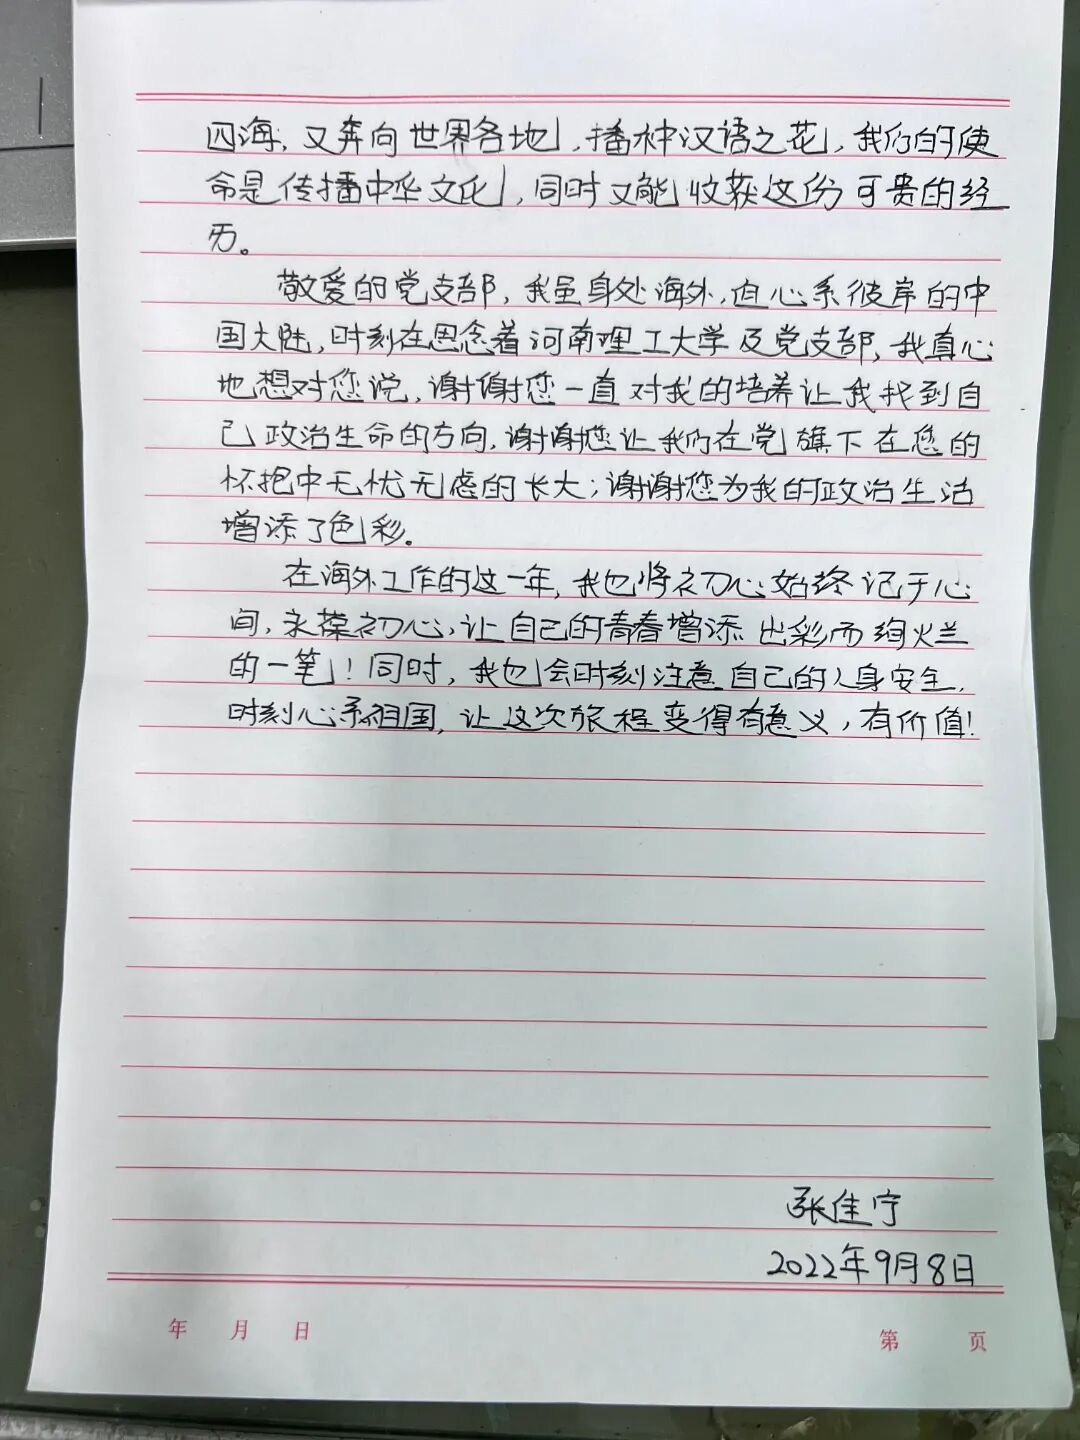 四海，又奔向世界各地，播种汉语之花，我们的使
命是传播中华文化，同时又能收获这份可贵的经
历。
敬爱的党支部，我虽身处海外，但心系彼岸的中
国大陆，时刻在思念着河南理工大学及党支部，我真心
地想对您说，谢谢您一直对我的培养让我找到自
己政治生命的方向，谢谢您让我们在党旗下在您的
怀抱中无忧无虑的长大；谢谢您为我的政治生活
增添了色彩。
在海外工作的这一年，我也将初心始终记于心
间，永葆初心，让自己的青春增添出彩而绚烂
的一笔！同时，我也会时刻注意自己的人身安全，
时刻心系祖国，让这次旅程变得有意义，有价值！
张佳宁
2022年9月8日
年 月 日 第 页